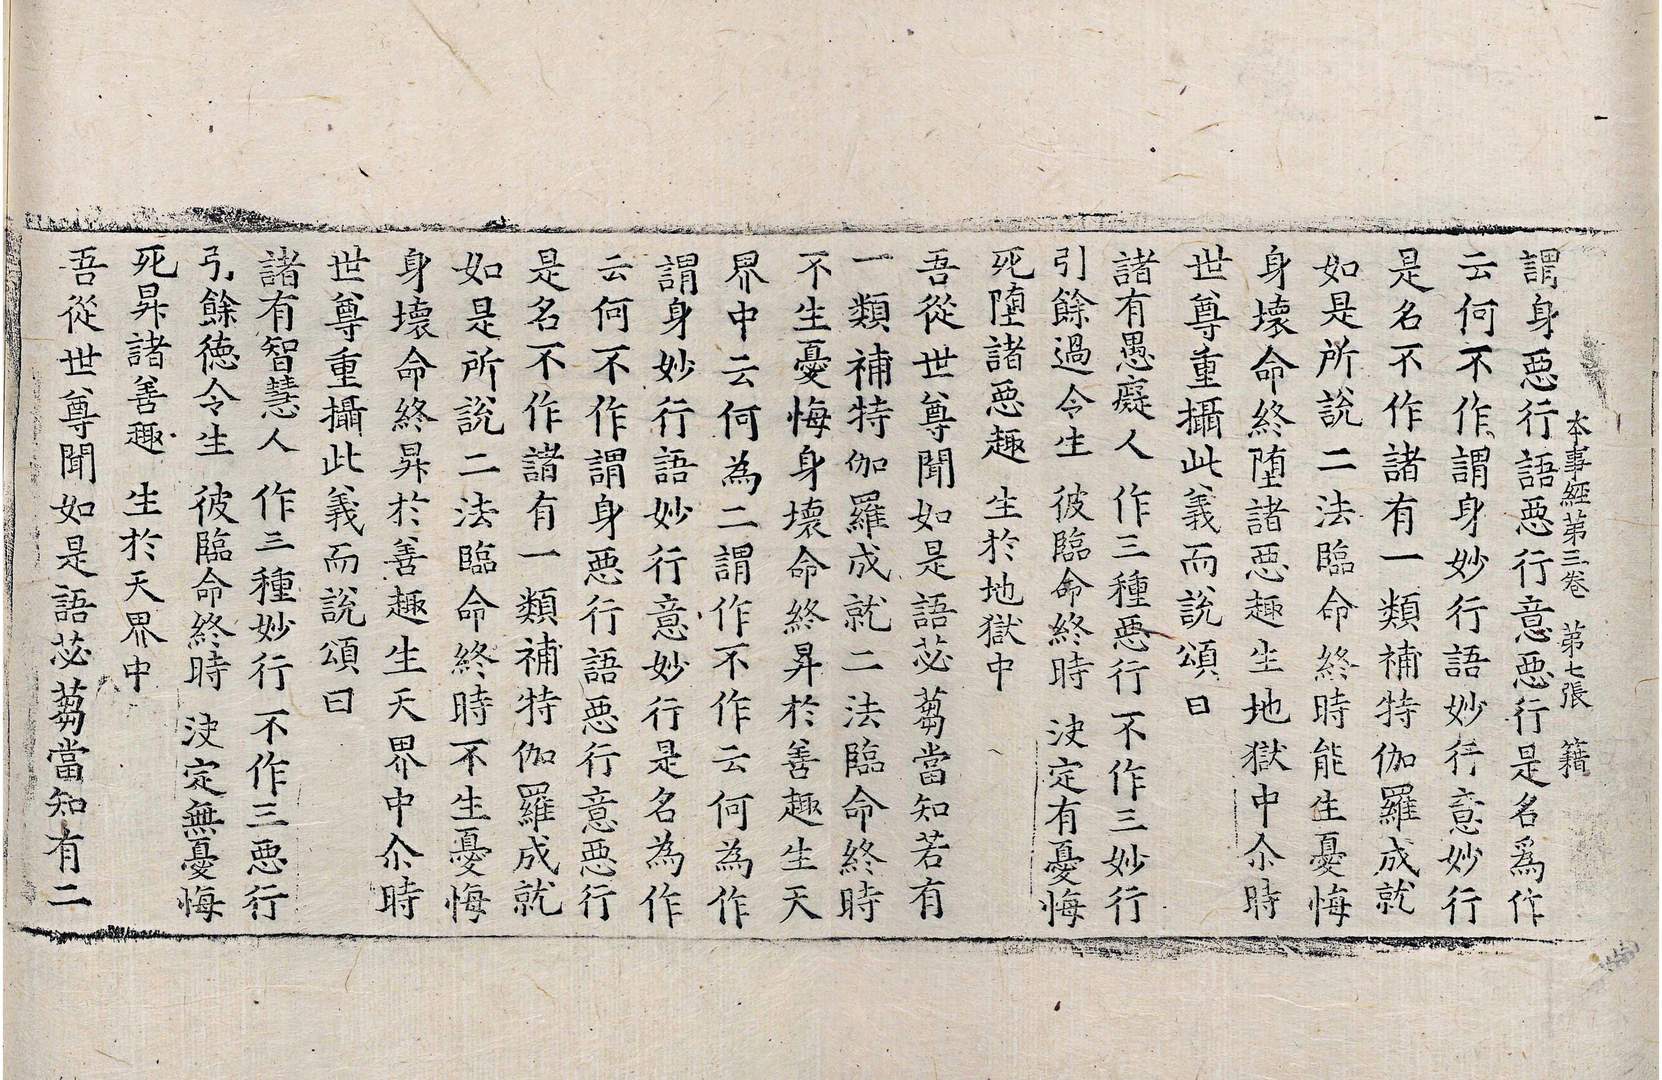 本事經第三卷　第七張　籍
謂身惡行語惡行意惡行是名爲作
云何不作謂身妙行語妙行意妙行
是名不作諸有一類補特伽羅成就
如是所說二法臨命終時能生憂悔
身壞命終墮諸惡趣生地獄中尒時
世尊重攝此義而說頌曰
諸有愚癡人　作三種惡行　不作三妙行
引餘過令生　彼臨命終時　決定有憂悔
死墮諸惡趣　生於地獄中
吾從世尊聞如是語苾芻當知若有
一類補特伽羅成就二法臨命終時
不生憂悔身壞命終昇於善趣生天
界中云何為二謂作不作云何為作
謂身妙行語妙行意妙行是名為作
云何不作謂身惡行語惡行意惡行
是名不作諸有一類補特伽羅成就
如是所說二法臨命終時不生憂悔
身壞命終昇於善趣生天界中尒時
世尊重攝此義而說頌曰
諸有智慧人　作三種妙行　不作三惡行
引餘德令生　彼臨命終時　決定無憂悔
死昇諸善趣　生於天界中
吾從世尊聞如是語苾芻當知有二